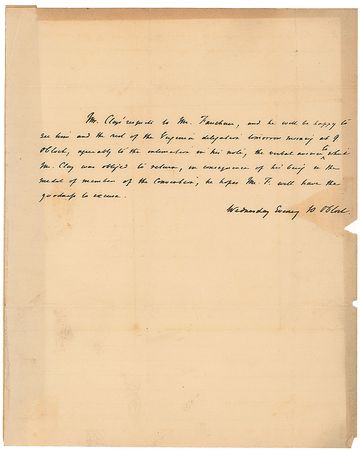 Mr. Clays' respects to Mr. Faulkner, and he will be happy to
see him and the rest of the Virginia delegation tomorrow morning at 9
OClock, agreeably to the intimation in his note, the verbal answer to which
Mr. Clay was obliged to return, in consequence of his being in the
midst of members of the Convention, he hopes Mr. F. will have the
goodness to excuse.
Wednesday Evening 10 OClock.